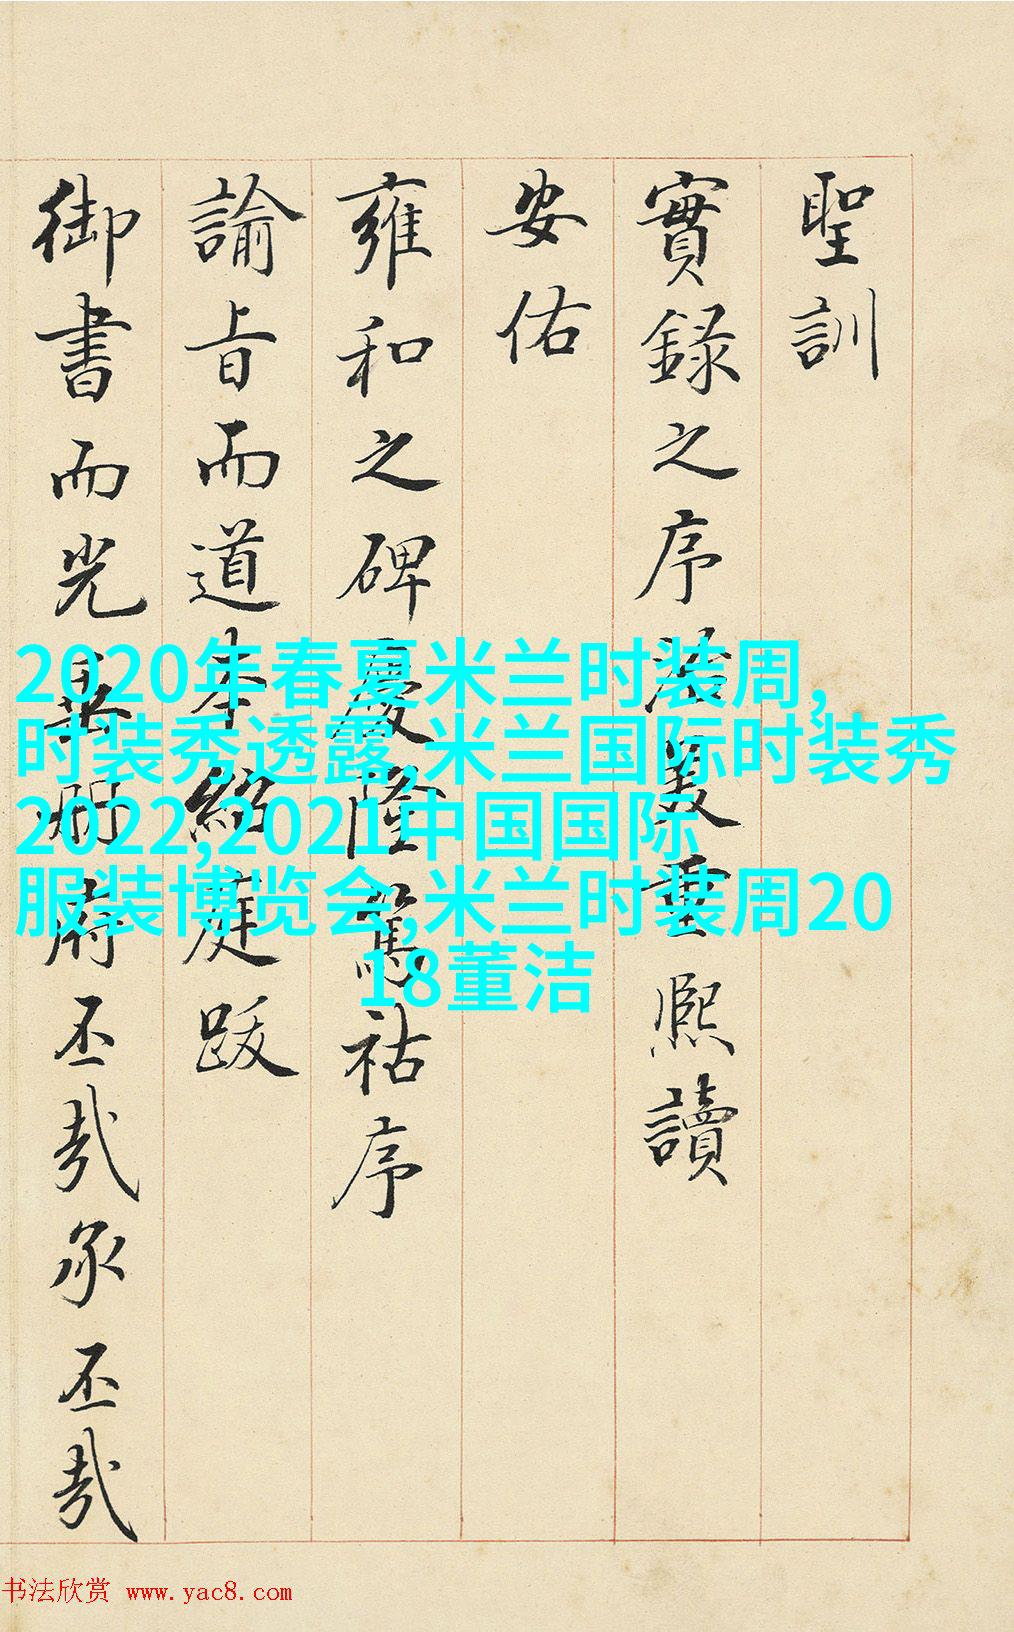 聖訓
實錄之序法羲重熙讀
安佑
雍和之碑慶隆篤祜序
諭旨而道本紹庭跋
御書而光昇明府丕哉承丕哉
2020年春夏米兰时装周,
时装秀透露,米兰国际时装秀
2022,2021中国国际
服装博览会,米兰时装周20
18董洁
书法欣赏 www.yac8.com